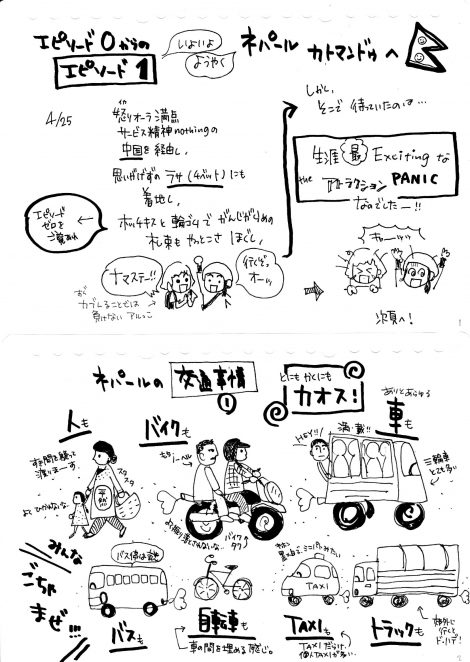 エピソード0からの
エピソード1
いよいよ
ようやく
ネパール カトマンドゥへ
4/25
怒りオーラ満点
サービス精神nothingの
中国を経由し、
思いがけずの ラサ(チベット)にも
着地し、
ホッチキスと輪ゴムで がんじがらめの
札束も やっとこさ ほぐし、
エピソード
ゼロを
ご覧あれ
ナマステー!!
行くぞっ
オーッ
カブレることでは
負けない アルっこ
しかし、
そこで 待っていたのは…
生涯 最 Exciting な
the アトラクション PANIC
なのでしたー!!
きゃーッッ
次頁へ!
ネパールの 交通事情
①
とにもかくにも
カオス!
人も
すき間を縫って
渡りまーす。
スタスタ
平然
よくひかれないな。
バイクも
ノーヘル
バイク
タク
ありとあらゆる
車も
満・載!!
HEY!!
三輪車
とても多い
みんな
ごちゃ
まぜ!!!
バスも
自転車も
車の間を埋める 感じ。
TAXI
TAXIも
TAXIだらけ。
個人TAXIが多い。
トラックも
郊外に
行くと